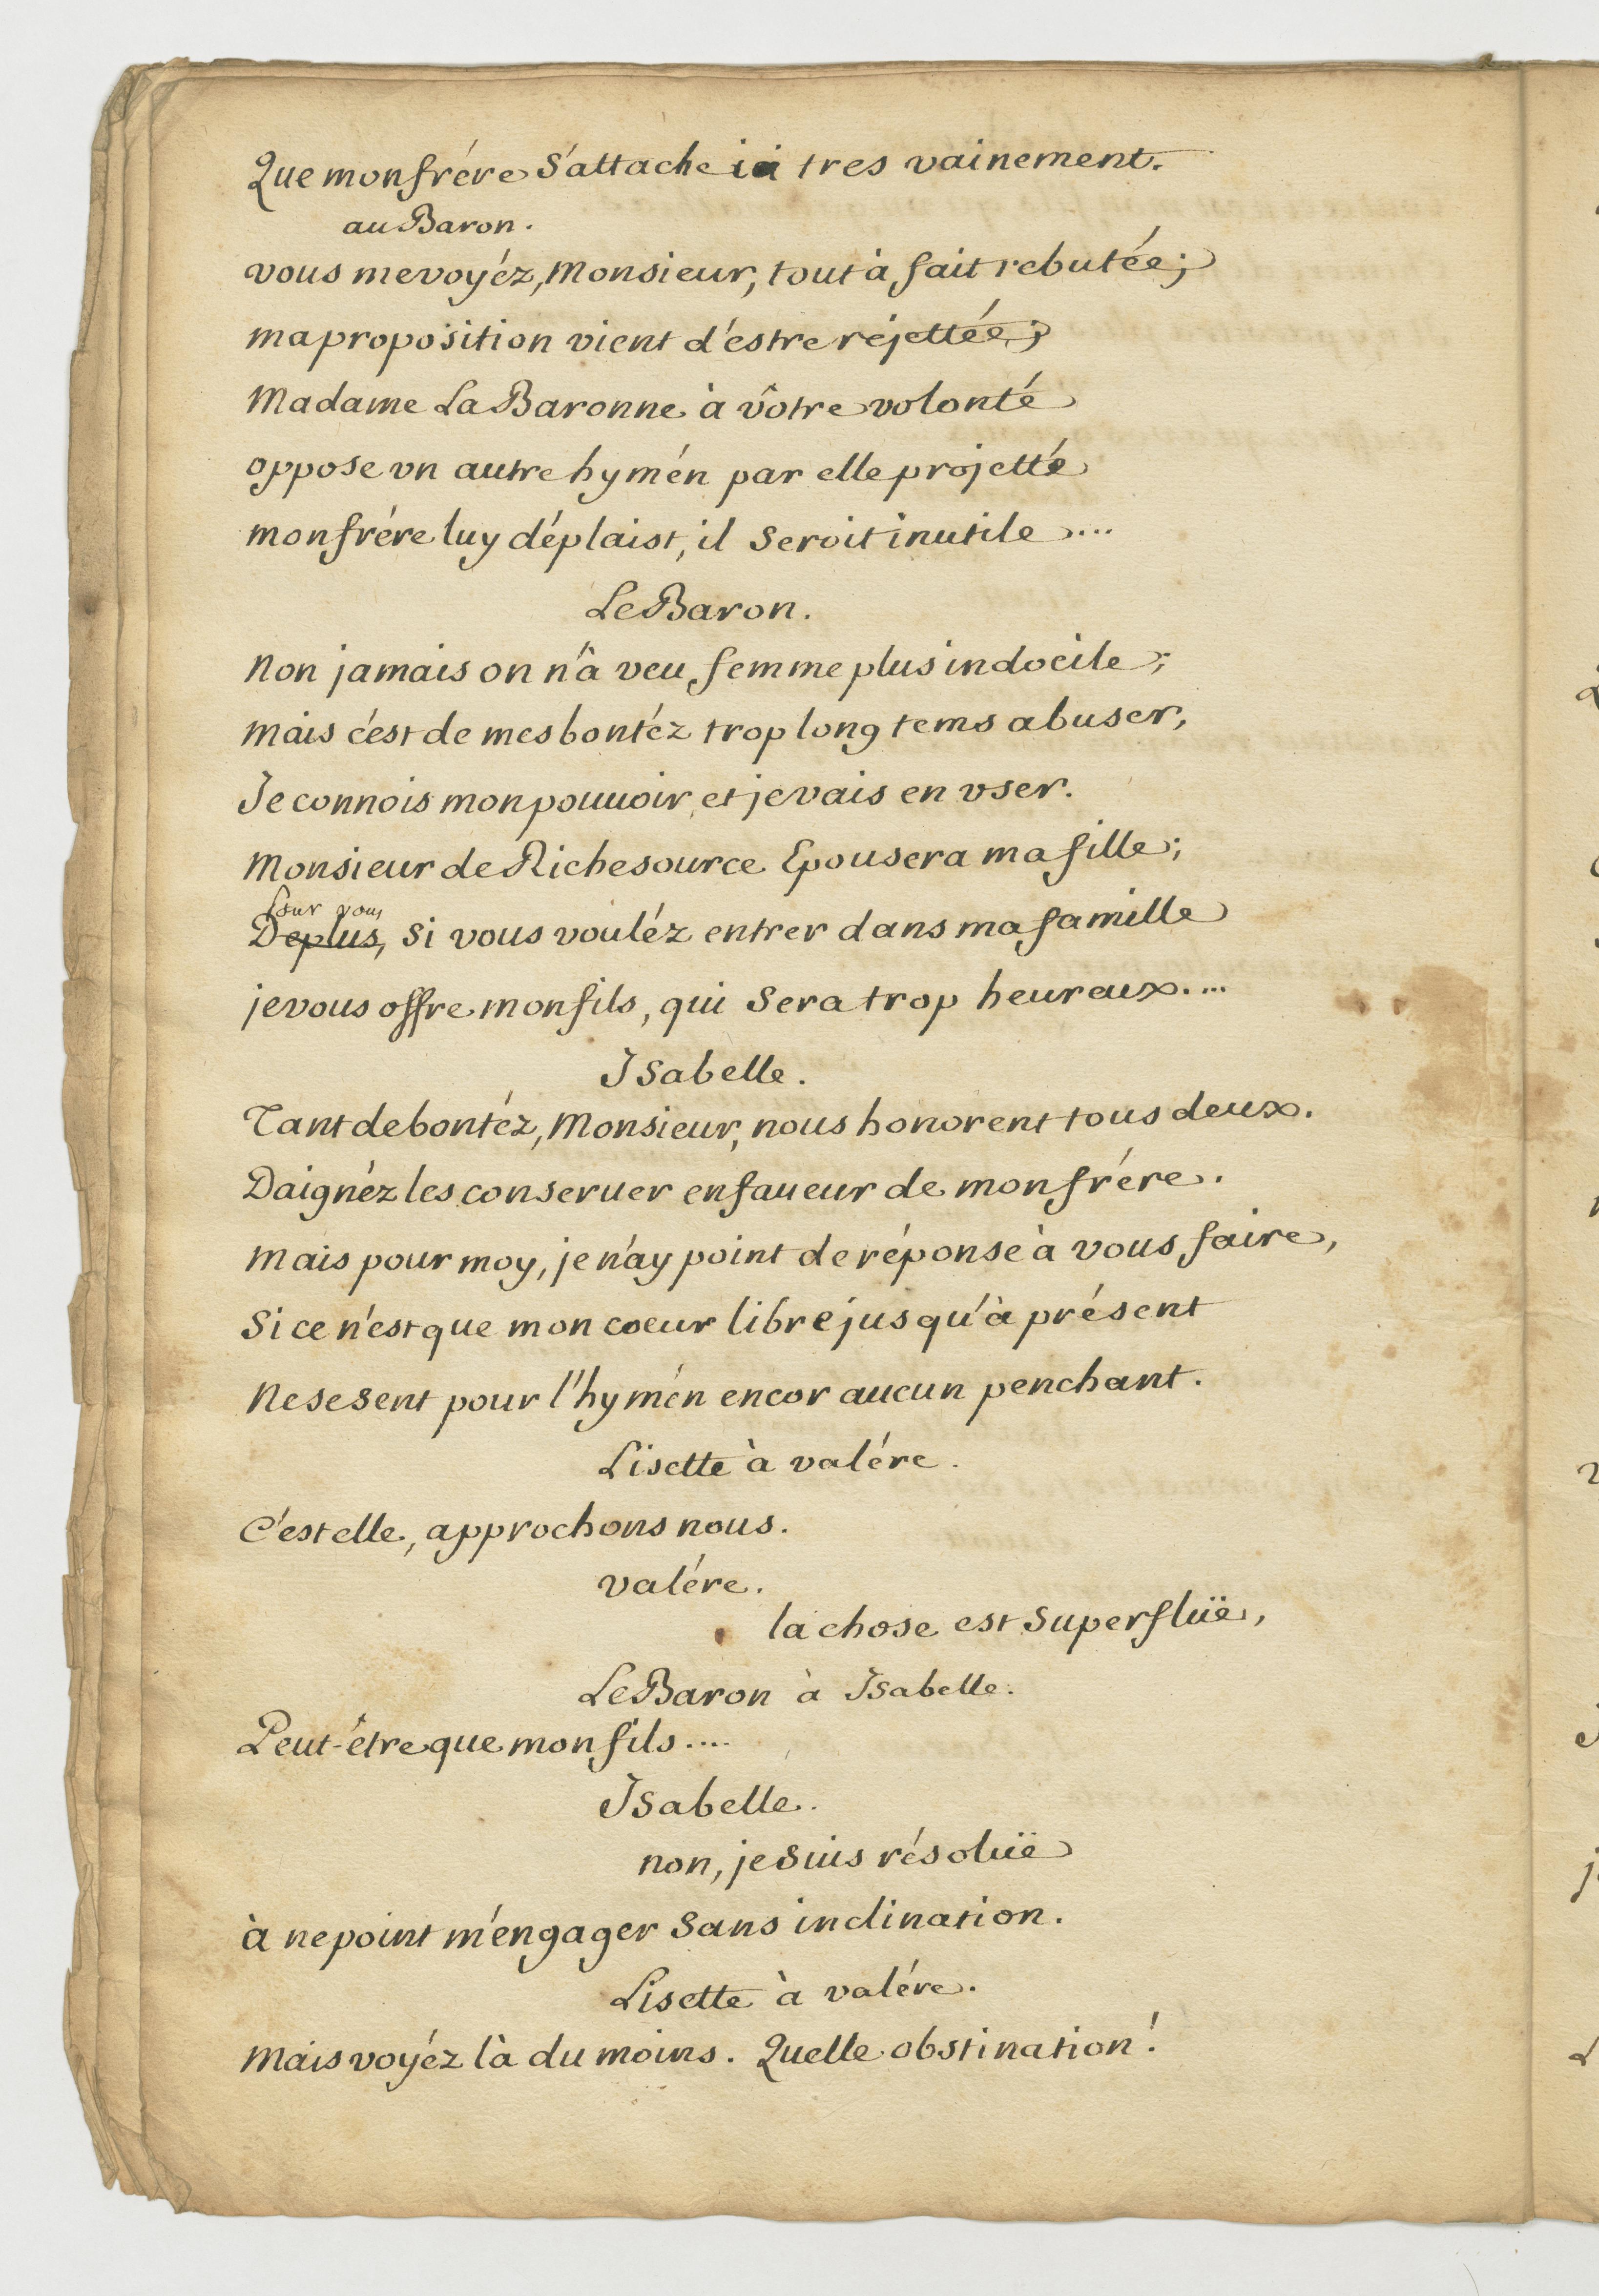 Que mon frére S'attache ici tres vainement.
au Baron.
vous me voyéz, Monsieur, tout à fait rebutée;
ma proposition vient d'estre réjettée;
Madame La Baronne à vôtre volonté
oppose vn autre hymén par elle projetté
mon frére luy déplaist, il Seroit inutile ....
Le Baron.
Non jamais on n'à veu femme plus indocile;
Mais c'est de mes bontéz trop long tems abuser,
Je connois mon pouuoir, et je vais en vser.
Monsieur de Richesource Epousera ma fille;
Pour vous
Deplus, Si vous vouléz entrer dans ma famille
je vous offre mon fils, qui Sera trop heureux....
Isabelle.
Tant de bontéz, Monsieur, nous honorent tous deux.
Daignéz les conseruer en faueur de mon frére.
Mais pour moy, je n'ay point de réponse à vous faire,
Si ce n'est que mon coeur libre jusqu'à présent
Ne se sent pour l'hymén encor aucun penchant.
Lisette à valére.
C'est elle, approchons nous.
valére.
la chose est Superflüe,
Le Baron à Isabelle.
Peut-étre que mon fils....
Isabelle.
non, je suis résolüe
à ne point m'engager Sans inclination.
Lisette à valére.
Mais voyéz là du moins. Quelle obstination!